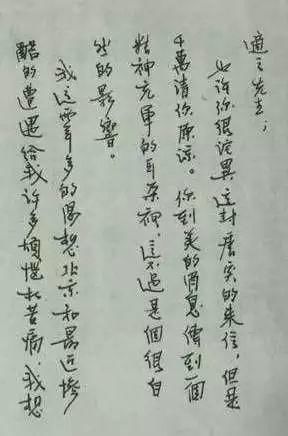 適之先生；
也许你很诧異這封唐突的来信，但是
千萬请你原谅。你到美的消息傳到一個
精神充軍的耳朵裡，這不过是個很自
然的影響。
我這两年多的渴想北京和最近惨
酷的遭遇给我许多烦惱和苦痛.我想